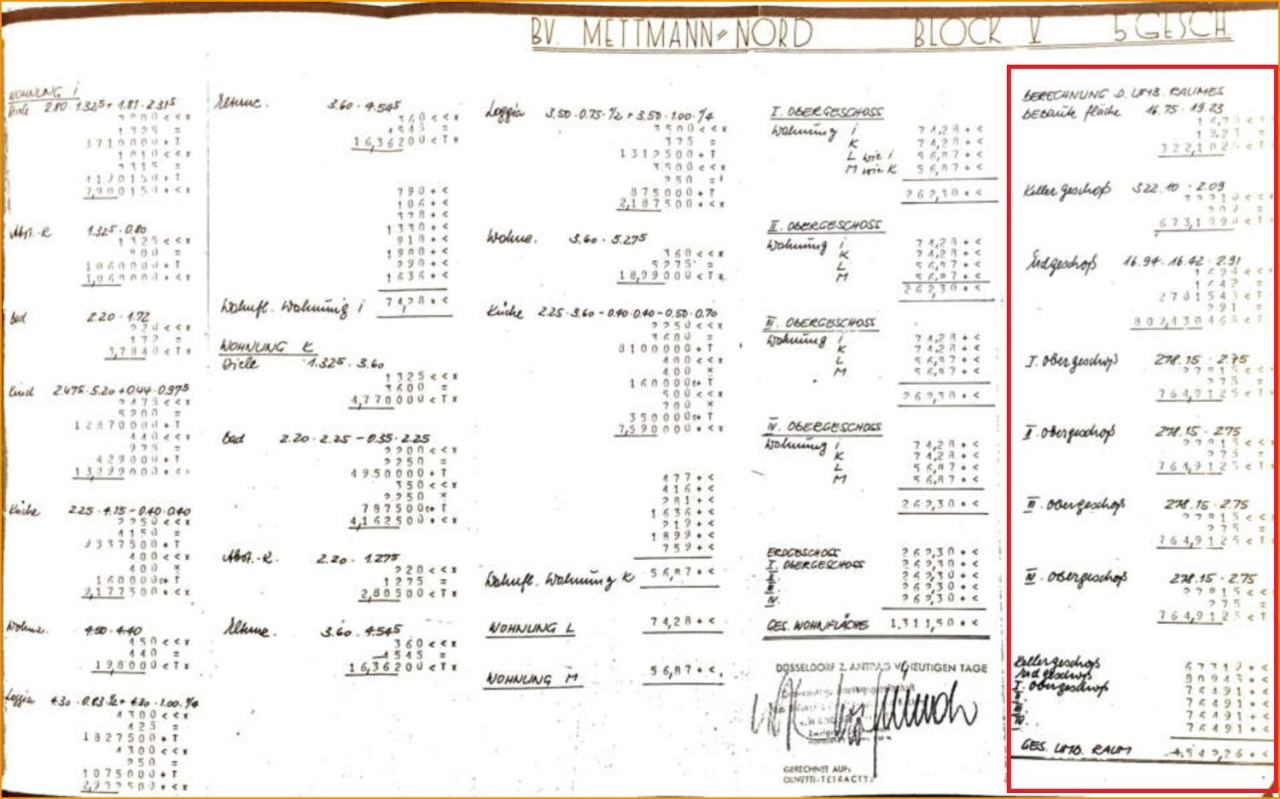 BV. METTMANN-NORD BLOCK V 5 GESCH.
WOHNUNG i
Diele 2.80·1.325+1.81·2.315
1325=
3710000+T
1810<<x
2315=
Abst.-R 1.325·0.80
1325<<x
800=
1060000+T
Bad 2.20·1.72
220<<x
172=
3,7840<Tx
Kind 2.475·5.20+0.44·0.975
2475<<x
5200=
12870000+T
440<<x
975=
429000+T
Küche 2.25·4.15-0.40·0.40
2250<<x
4150=
9337500+T
400<<x
400x
160000
Wohnz. 4.50·4.40
450<<x
440=
19,8000<Tx
Loggia
4300<<x
425=
1827500+T
4300<<x
250=
1075000+T
Elternz. 3.60·4.545
360<<x
4545=
16,36200<Tx
790+<
106+<
378+<
1330+<
918+<
1980+<
290+<
1636+<
Wohnfl. Wohnung i 74,28+<
WOHNUNG K
Diele 1.325·3.60
1325<<x
3600=
4,770000<Tx
Bad 2.20·2.25-0.35·2.25
2200<<x
2250=
4950000+T
350<<x
2250x
787500
4,162500<Tx
Abst.-R. 2.20·1.275
220<<x
1275=
2,80500<Tx
Elternz. 3.60·4.545
360<<x
4545=
16,36200<Tx
Loggia 3.50·0.75·½+3.50·1.00·¼
3500<<x
375=
1312500+T
3500<<x
250=
875000+T
2,187500+<x
Wohnz. 3.60·5.275
360<<x
5275=
18,99000<Tx
Küche 2.25·3.60-0.40·0.40-0.50·0.70
2250<<x
3600=
8100000+T
400<<x
400x
160000
500<<x
700x
350000
7,590000<Tx
477+<
416+<
281+<
1636+<
219+<
1899+<
759+<
Wohnfl. Wohnung K 56,87+<
WOHNUNG L 74,28+<
WOHNUNG M 56,87+<
I. OBERGESCHOSS
Wohnung i 74,28+<
K 74,28+<
L wie i 56,87+<
M wie K 56,87+<
262,30+<
II. OBERGESCHOSS
Wohnung i 74,28+<
K 74,28+<
L 56,87+<
M 56,87+<
262,30+<
III. OBERGESCHOSS
Wohnung i 74,28+<
K 74,28+<
L 56,87+<
M 56,87+<
262,30+<
IV. OBERGESCHOSS
Wohnung i 74,28+<
K 74,28+<
L 56,87+<
M 56,87+<
262,30+<
ERDGESCHOSS 262,30+<
I. OBERGESCHOSS 262,30+<
II. 262,30+<
III. 262,30+<
IV. 262,30+<
GES. WOHNFLÄCHE 1.311,50+<
DÜSSELDORF Z. ANTRAG V. HEUTIGEN TAGE
GERECHNET AUF:
OLIVETTI-TETRACTYS
BERECHNUNG D. UMB. RAUMES
bebaute fläche 16.75·19.23
322,1025<T
Kellergeschoß 322.10·2.09
32210<<
209=
Erdgeschoß 16.94·16.42·2.91
1694<<
1642=
291=
I. Obergeschoß 278.15·2.75
27815<<
275=
764,9125<T
II. Obergeschoß 278.15·2.75
27815<<
275=
764,9125<T
III. Obergeschoß 278.15·2.75
27815<<
275=
764,9125<T
IV. Obergeschoß 278.15·2.75
27815<<
275=
764,9125<T
Kellergeschoß 67319+<
Erdgeschoß 80943+<
I. Obergeschoß 76491+<
76491+<
76491+<
76491+<
GES. UMB. RAUM 4.542,26+<